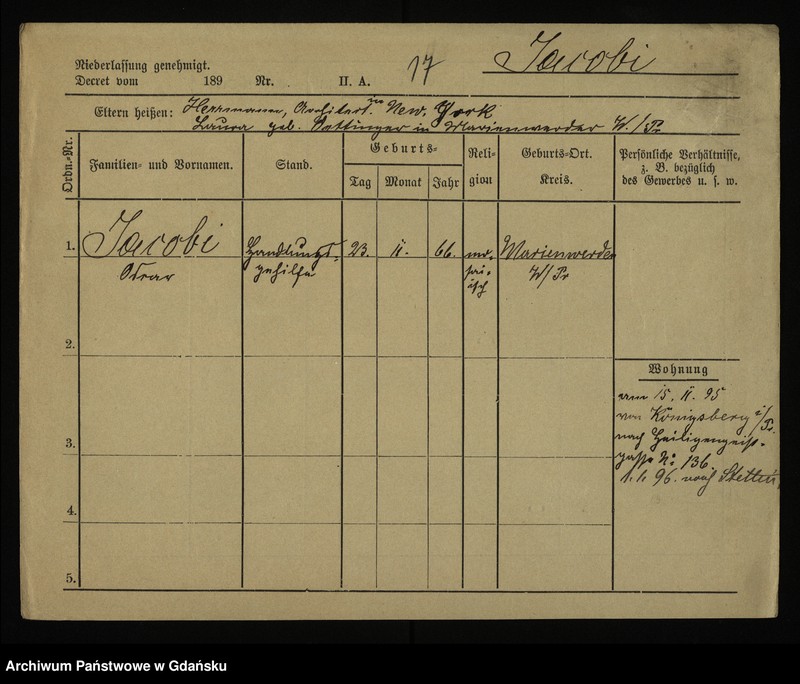 Niederlassung genehmigt.
Decret vom 189 Nr. II. A. 17 Jacobi
Eltern heißen: Herrmann, Architect. in New. York
Laura geb. in Marienwerder W./Pr
Ordn.-Nr. Familien- und Vornamen. Stand. Geburts- Tag Monat Jahr Religion Geburts-Ort. Kreis. Persönliche Verhältnisse, z. B. bezüglich des Gewerbes u. s. w.
1. Jacobi Handlungs- 23. II. 66. mo- Marienwerder
Oscar gehilfe sai- W/Pr
isch
2.
Wohnung
am 15. II. 95
von Königsberg i/Pr.
nach Heiligengeist-
3.
gasse No 136.
1. 1. 96. nach Stettin
4.
5.
Archiwum Państwowe w Gdańsku